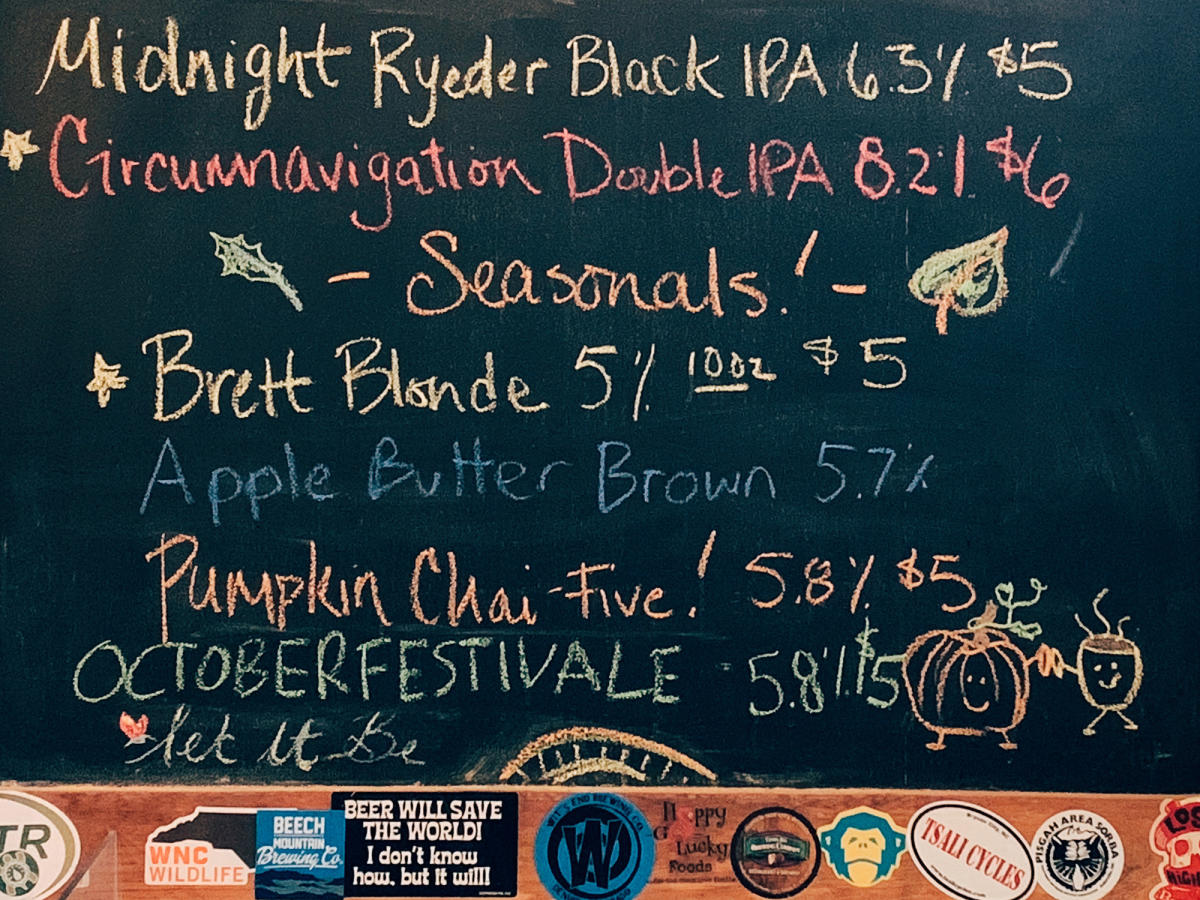 Midnight Ryeder Black IPA 6.3% $5
Circumnavigation Double IPA 8.2% $6
- Seasonals! -
Brett Blonde 5% 10oz $5
Apple Butter Brown 5.7%
Pumpkin Chai-Five! 5.8% $5
OCTOBERFESTIVALE 5.8% $5
let it Be
TR
WNC
WILDLIFE
BEECH
MOUNTAIN
Brewing Co.
BEER WILL SAVE
THE WORLD!
I don't know
how, but it will!
W
Hoppy
Go Lucky
Foods
TSALI CYCLES
PISGAH AREA SORBA